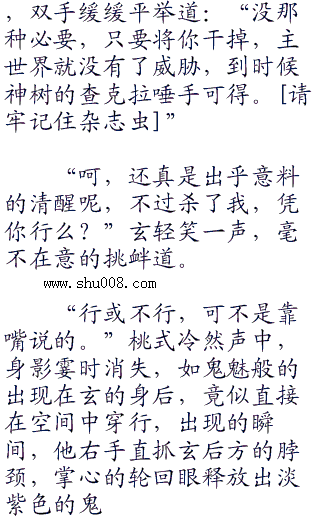 ，双手缓缓平举道：“没那
种必要，只要将你干掉，主
世界就没有了威胁，到时候
神树的查克拉唾手可得。[请
牢记住杂志虫]”
“呵，还真是出乎意料
的清醒呢，不过杀了我，凭
你行么？”玄轻笑一声，毫
不在意的挑衅道。
www.shu008.com
“行或不行，可不是靠
嘴说的。”桃式冷然声中，
身影霎时消失，如鬼魅般的
出现在玄的身后，竟似直接
在空间中穿行，出现的瞬
间，他右手直抓玄后方的脖
颈，掌心的轮回眼释放出淡
紫色的鬼